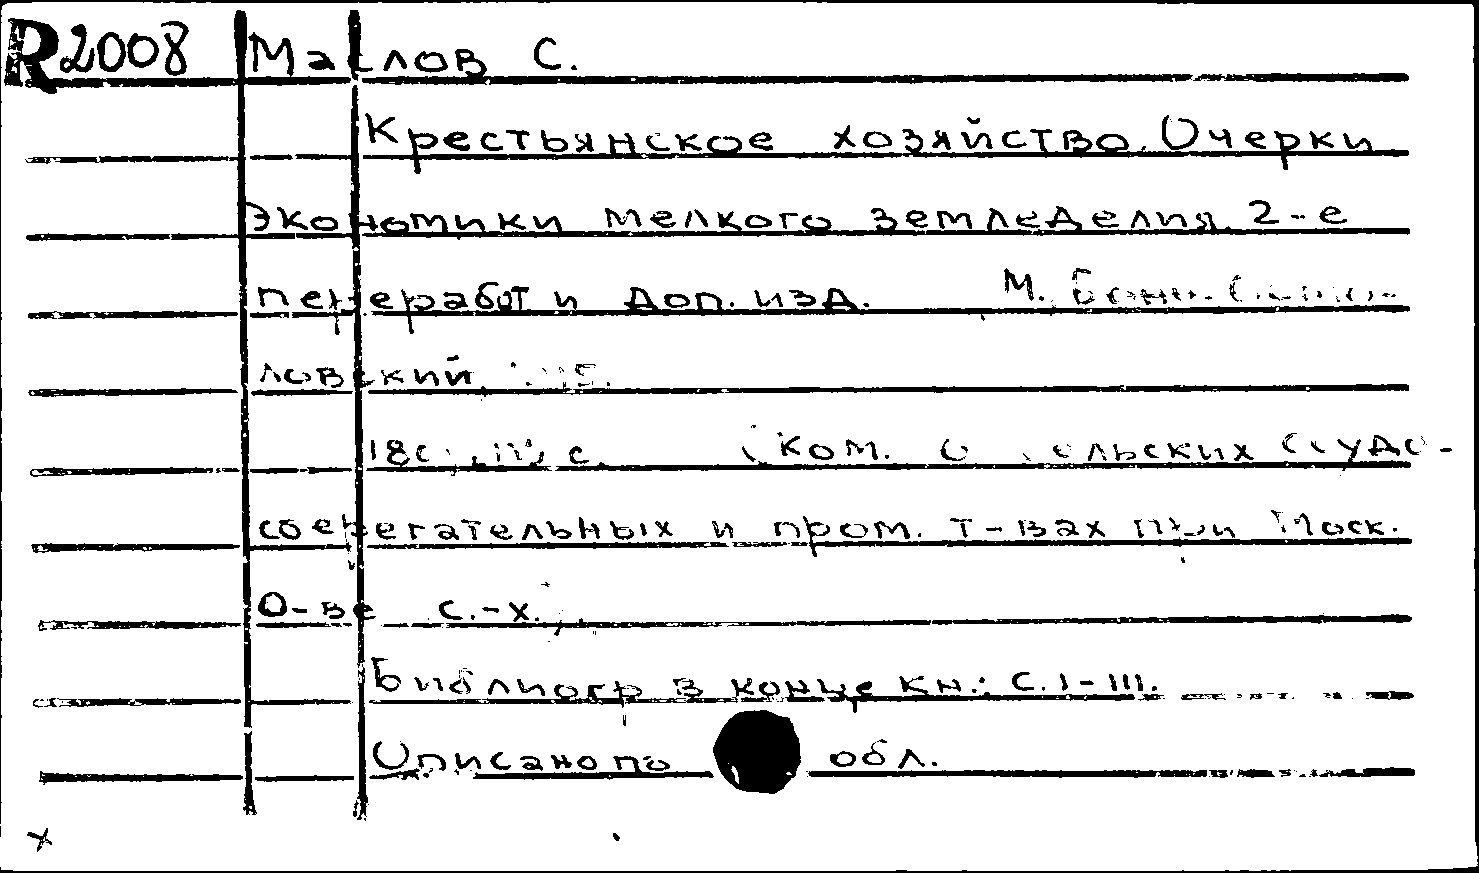 R2008 Маслов С.
Крестьянское хозяйство. Очерки
экономики мелкого земледелия. 2-е
переработ и доп. изд. М.
ловский,
с. Ком. о сельских ссудо-
сберегательных и пром. т-вах при Моск.
О-ве с.-х.,
Библиогр в конце кн.: С. I-III.
Описано по обл.